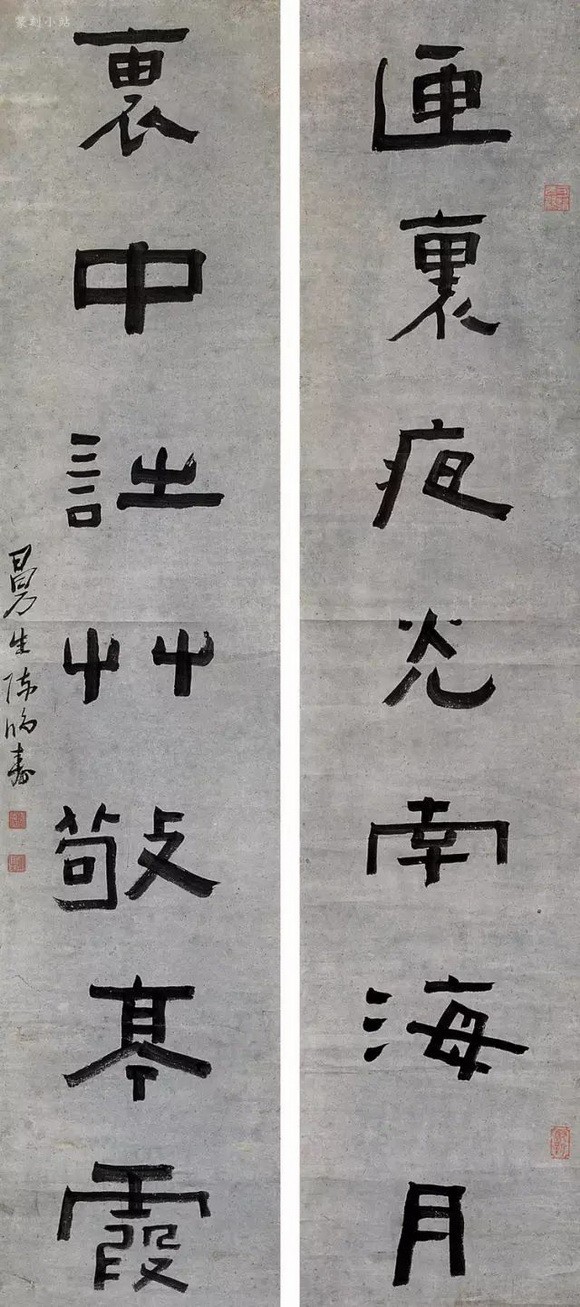 匣裏夜光南海月
袖中詩艸敬亭霞
曼生陳鴻壽
篆刻小站